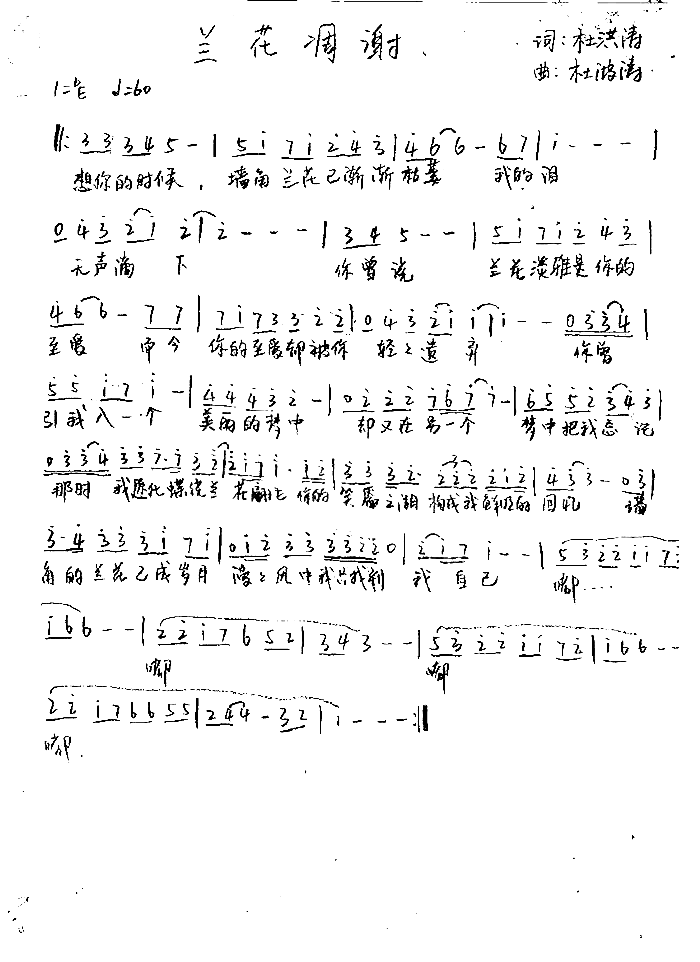 兰花凋谢
词:杜洪涛
曲:杜鸿涛
1=♭E ♩=60
‖: 3 3 3 4 5 - | 5 i 7 i 2 4 3 | 4 6 6 - 6 7 | i - - - |
想你的时候, 墙角兰花已渐渐枯萎 我的泪
0 4 3 2 i 2 | 2 - - - | 3 4 5 - - | 5 i 7 i 2 4 3 |
无声滴 下 你曾说 兰花淡雅是你的
4 6 6 - 7 7 | 7 i 7 3 3 2 2 | 0 4 3 2 i i | i - - 0 3 3 4 |
至爱 而今 你的至爱却被你 轻轻遗弃 你曾
5 5 i 7 i - | 4 4 4 3 2 - | 0 2 2 2 7 6 7 7 - | 6 5 5 2 3 4 3 |
引我入一个 美丽的梦中 却又在另一个 梦中把我忘记
0 3 3 4 3 3 7 · i 3 2 | 2 i 7 i · i 2 | 3 3 3 2 · 2 2 2 2 i 2 | 4 3 3 - 0 3 |
那时 我愿化蝶绕兰 花翩飞 你的 笑靥 构成我 的回忆 墙
3 · 4 3 3 3 i 7 i | 0 i 2 3 3 3 3 2 2 0 | 2 i 7 i - - | 5 3 2 2 i i 7
角的兰花已成岁月 凄凄风中我只找到 我自己 嘟....
i 6 6 - - | 2 2 i 7 6 5 2 | 3 4 3 - - | 5 3 2 2 i i 7 2 | i 6 6 - -
嘟 嘟
2 2 i 7 6 6 5 5 | 2 4 4 - 3 2 | i - - - :‖
嘟.